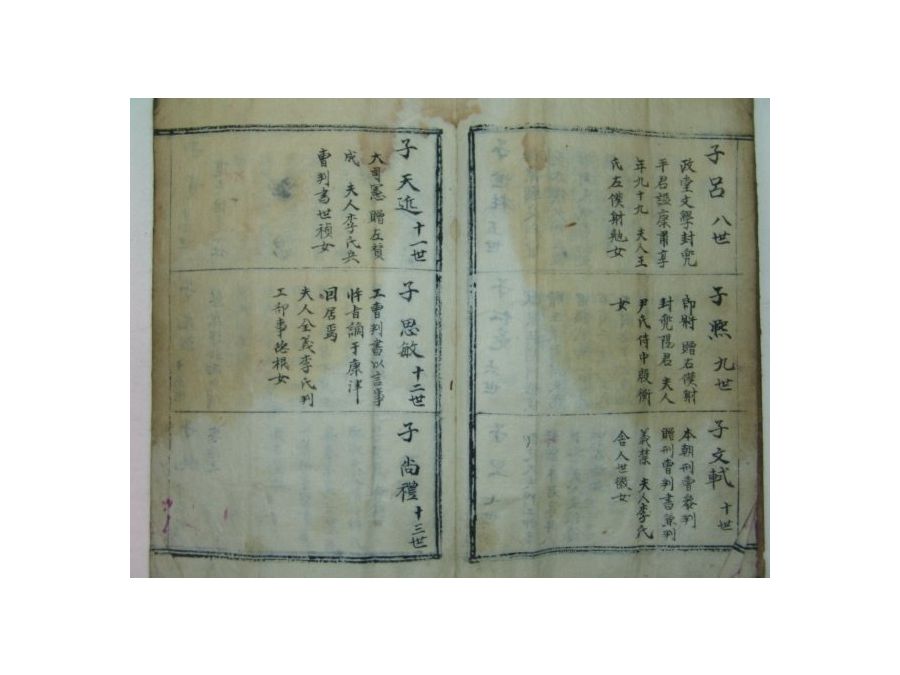 子 呂 八世
政堂文學封兜
平君謚康肅享
年九十九 夫人王
氏左僕射勉女
子 熙 九世
郎將 贈右僕射
封兜陽君 夫人
尹氏侍中殷衡
女
子 文軾 十世
本朝刑曹參判
贈刑曹判書兼判
義禁 夫人李氏
舍人世徽女
子 天近 十一世
大司憲 贈左贊
成 夫人李氏兵
曹判書世禎女
子 思敏 十二世
工曹判書以言事
忤旨謫于康津
回居焉
夫人全義李氏判
工部事德根女
子 尚禮 十三世